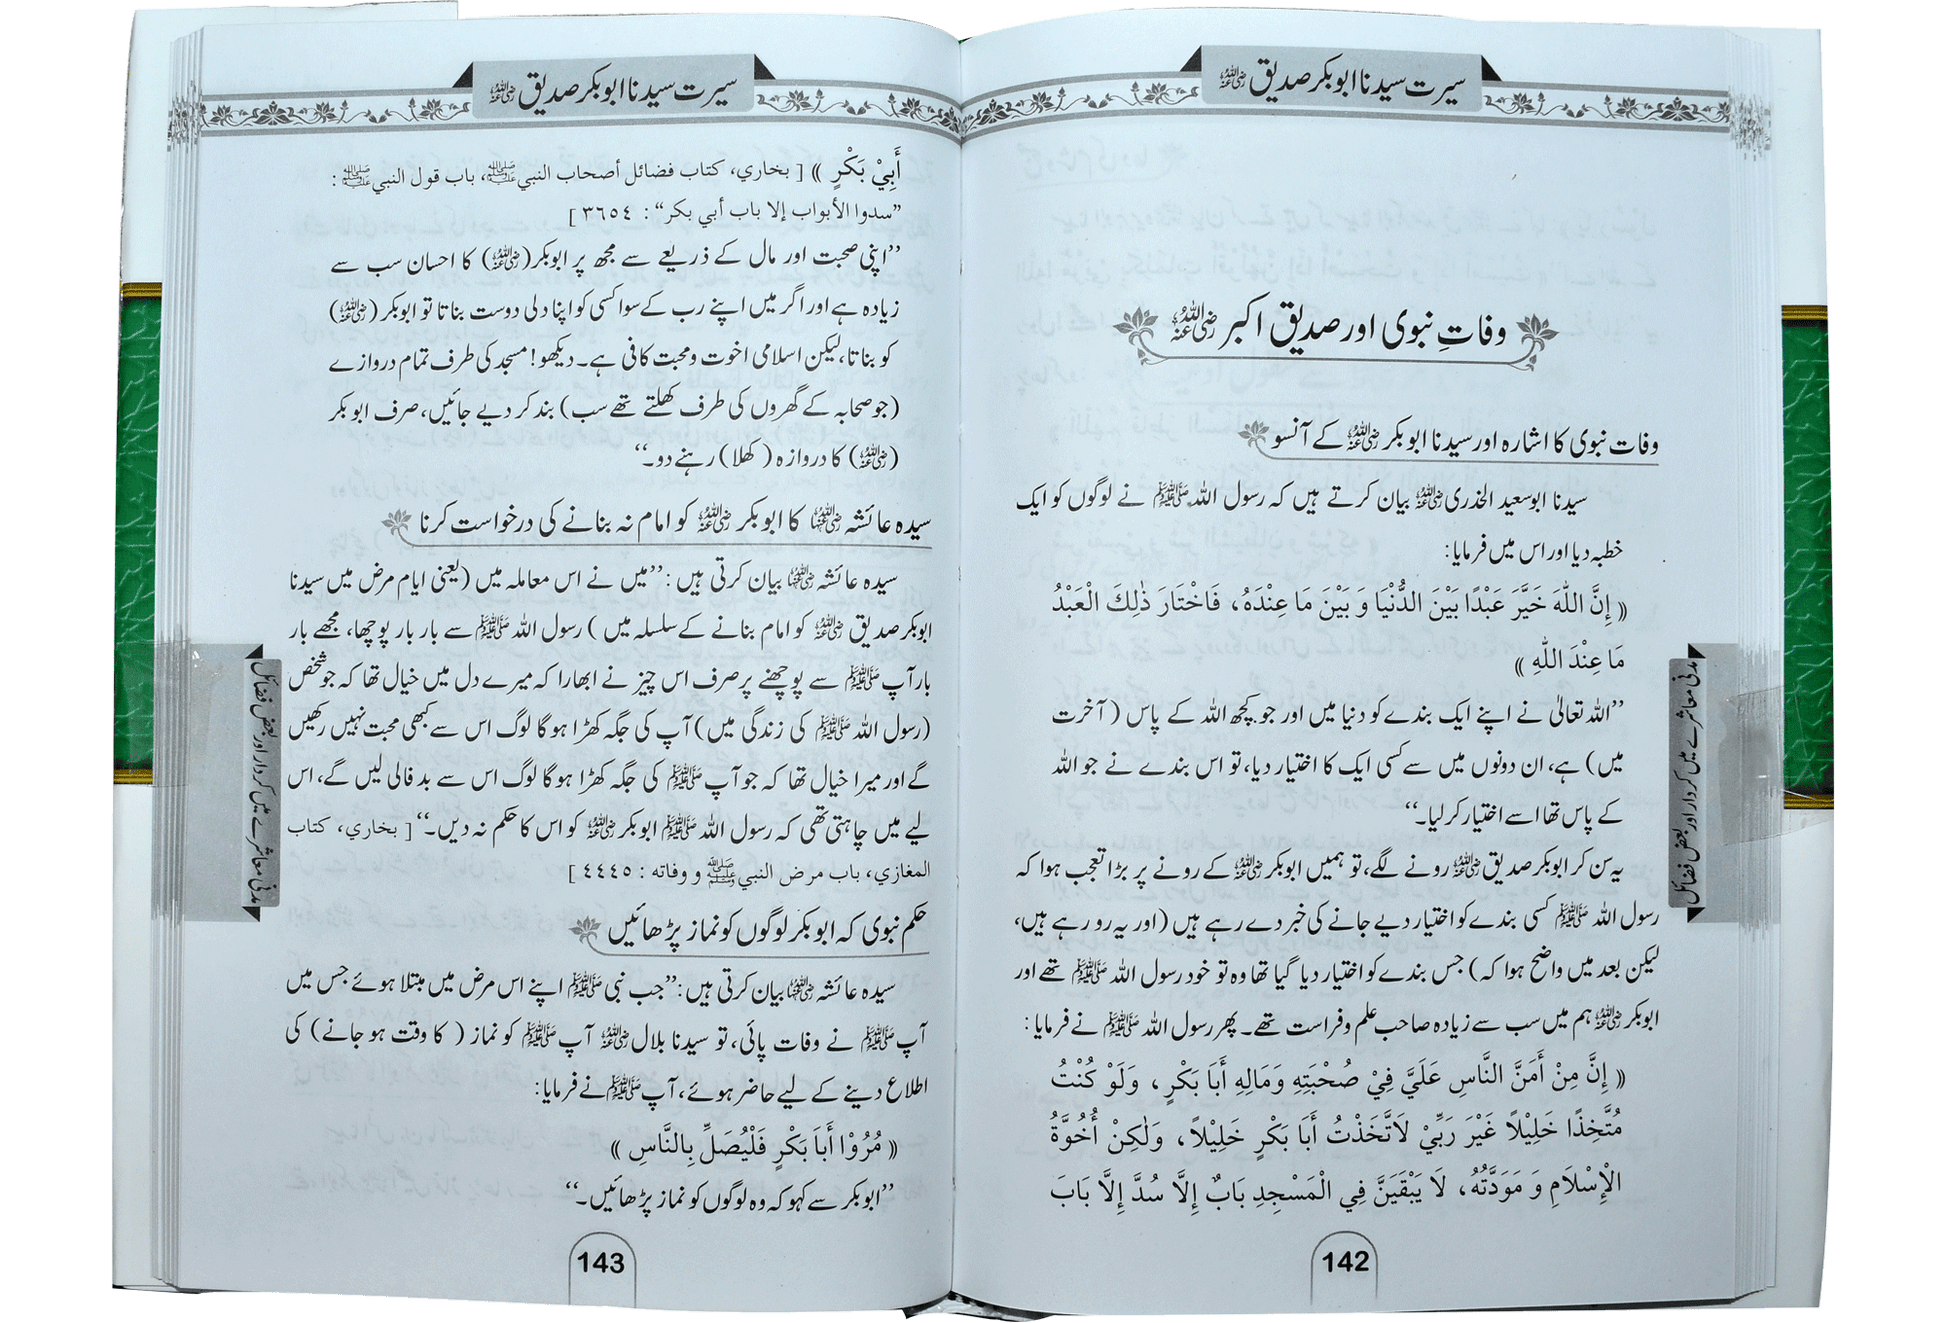 سیرت سیدنا ابوبکر صدیق رضی اللہ عنہ
وفاتِ نبوی اور صدیق اکبر رضی اللہ عنہ
وفات نبوی کا اشارہ اور سیدنا ابوبکر رضی اللہ عنہ کے آنسو
سیدنا ابوسعید الخدری رضی اللہ عنہ بیان کرتے ہیں کہ رسول اللہ ﷺ نے لوگوں کو ایک
خطبہ دیا اور اس میں فرمایا:
(( إِنَّ اللّٰهَ خَيَّرَ عَبْدًا بَيْنَ الدُّنْيَا وَ بَيْنَ مَا عِنْدَهُ، فَاخْتَارَ ذٰلِكَ الْعَبْدُ
مَا عِنْدَ اللّٰهِ ))
’’اللہ تعالیٰ نے اپنے ایک بندے کو دنیا میں اور جو کچھ اللہ کے پاس (آخرت
میں) ہے، ان دونوں میں سے کسی ایک کا اختیار دیا، تو اس بندے نے جو اللہ
کے پاس تھا اسے اختیار کر لیا۔‘‘
یہ سن کر ابوبکر صدیق رضی اللہ عنہ رونے لگے، تو ہمیں ابوبکر رضی اللہ عنہ کے رونے پر بڑا تعجب ہوا کہ
رسول اللہ ﷺ کسی بندے کو اختیار دیے جانے کی خبر دے رہے ہیں (اور یہ رو رہے ہیں،
لیکن بعد میں واضح ہوا کہ) جس بندے کو اختیار دیا گیا تھا وہ تو خود رسول اللہ ﷺ تھے اور
ابوبکر رضی اللہ عنہ ہم میں سب سے زیادہ صاحب علم و فراست تھے۔ پھر رسول اللہ ﷺ نے فرمایا:
(( إِنَّ مِنْ أَمَنَّ النَّاسِ عَلَيَّ فِيْ صُحْبَتِهِ وَمَالِهِ أَبَا بَكْرٍ، وَلَوْ كُنْتُ
مُتَّخِذًا خَلِيْلًا غَيْرَ رَبِّيْ لَاتَّخَذْتُ أَبَا بَكْرٍ خَلِيْلًا، وَلٰكِنْ أُخُوَّةُ
الْإِسْلَامِ وَ مَوَدَّتُهُ، لَا يَبْقَيَنَّ فِي الْمَسْجِدِ بَابٌ إِلَّا سُدَّ إِلَّا بَابَ
مدنی معاشرے میں کردار اور بعض فضائل
142
سیرت سیدنا ابوبکر صدیق رضی اللہ عنہ
أَبِيْ بَكْرٍ )) [ بخاري، كتاب فضائل أصحاب النبي ﷺ، باب قول النبي ﷺ :
”سدوا الأبواب إلا باب أبي بكر“ : ٣٦٥٤ ]
’’اپنی صحبت اور مال کے ذریعے سے مجھ پر ابوبکر (رضی اللہ عنہ) کا احسان سب سے
زیادہ ہے اور اگر میں اپنے رب کے سوا کسی کو اپنا دلی دوست بناتا تو ابوبکر (رضی اللہ عنہ)
کو بناتا، لیکن اسلامی اخوت و محبت کافی ہے۔ دیکھو! مسجد کی طرف تمام دروازے
(جو صحابہ کے گھروں کی طرف کھلتے تھے سب) بند کر دیے جائیں، صرف ابوبکر
(رضی اللہ عنہ) کا دروازہ (کھلا) رہنے دو۔‘‘
سیدہ عائشہ رضی اللہ عنہا کا ابوبکر رضی اللہ عنہ کو امام نہ بنانے کی درخواست کرنا
سیدہ عائشہ رضی اللہ عنہا بیان کرتی ہیں: ’’میں نے اس معاملہ میں (یعنی ایام مرض میں سیدنا
ابوبکر صدیق رضی اللہ عنہ کو امام بنانے کے سلسلہ میں) رسول اللہ ﷺ سے بار بار پوچھا، مجھے بار
بار آپ ﷺ سے پوچھنے پر صرف اس چیز نے ابھارا کہ میرے دل میں خیال تھا کہ جو شخص
(رسول اللہ ﷺ کی زندگی میں) آپ کی جگہ کھڑا ہو گا لوگ اس سے کبھی محبت نہیں رکھیں
گے اور میرا خیال تھا کہ جو آپ ﷺ کی جگہ کھڑا ہو گا لوگ اس سے بد فالی لیں گے، اس
لیے میں چاہتی تھی کہ رسول اللہ ﷺ ابوبکر رضی اللہ عنہ کو اس کا حکم نہ دیں۔‘‘ [ بخاري، كتاب
المغازي، باب مرض النبي ﷺ و وفاته : ٤٤٤٥ ]
حکم نبوی کہ ابوبکر لوگوں کو نماز پڑھائیں
سیدہ عائشہ رضی اللہ عنہا بیان کرتی ہیں: ’’جب نبی ﷺ اپنے اس مرض میں مبتلا ہوئے جس میں
آپ ﷺ نے وفات پائی، تو سیدنا بلال رضی اللہ عنہ آپ ﷺ کو نماز ( کا وقت ہو جانے) کی
اطلاع دینے کے لیے حاضر ہوئے، آپ ﷺ نے فرمایا:
(( مُرُوْا أَبَا بَكْرٍ فَلْيُصَلِّ بِالنَّاسِ ))
’’ابوبکر سے کہو کہ وہ لوگوں کو نماز پڑھائیں۔‘‘
مدنی معاشرے میں کردار اور بعض فضائل
143